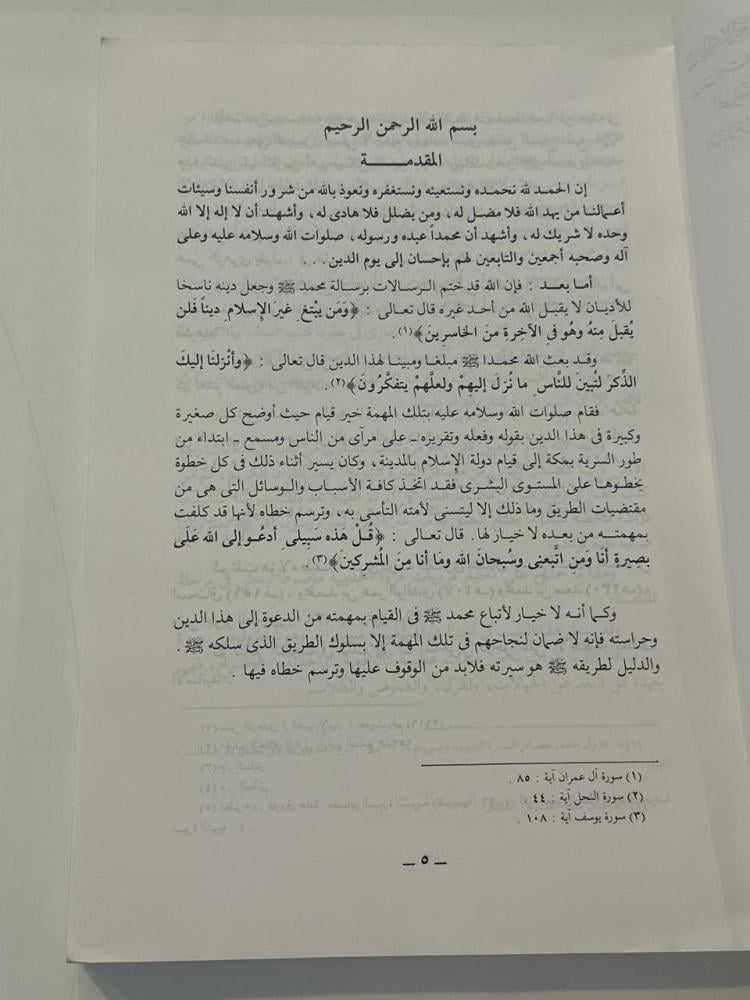 بسم الله الرحمن الرحيم
المقدمـــــة
إن الحمـد لله نحمـده ونستعينه ونستغفره ونعوذ بالله من شرور أنفسنا وسيئات
أعـمالنـا من يهد الله فلا مضـل له، ومن يضلل فلا هادى له، وأشهـد أن لا إله إلا الله
وحده لا شريك له، وأشهد أن محمداً عبده ورسوله، صلوات الله وسلامه عليه وعلى
آله وصحبه أجمعين والتابعين لهم بإحسان إلى يوم الدين . . .
أما بعـد : فإن الله قد ختم الرسـالات برسالة محمد ﷺ وجعل دينه ناسخا
للأديان لا يقبل الله من أحد غيره قال تعـالى : ﴿وَمَن يبْتغ ِ غيرَ الإِسلام ِ ديناً فَلن
يُقبلَ مِنهُ وهُو فى الآخِرةِ منَ الخاسِرِينَ﴾(١).
وقـد بعث الله محمـدا ﷺ مبلغـا ومبينا لهـذا الدين قال تعالى : ﴿وأنْزلنَا إليكَ
الذِّكرَ لتُبينَ للنَّاس ِ ما نُزلَ إليهمْ ولعلَّهمْ يتفكَّرُونَ﴾(٢).
فقام صلوات الله وسلامه عليه بتلك المهمة خير قيام حيث أوضح كل صغيرة
وكبيرة فى هذا الدين بقوله وفعله وتقريره ـ على مرآى من الناس ومسمع ـ ابتداء من
طور السرية بمكة إلى قيام دولة الإسلام بالمدينة، وكان يسير أثناء ذلك فى كل خطوة
يخطـوهـا على المستـوى البشـرى فقـد اتخذ كافـة الأسبـاب والـوسائل التى هى من
مقتضيات الطريق وما ذلك إلا ليتسنى لأمته التأسى به، وترسم خطاه لأنها قد كلفت
بمهمتـه من بعـده لا خيـار لها. قال تعـالى : ﴿قُـلْ هَذه سَبِيلى ِ أدعُـو إلى الله عَلَى
بصِيرةٍ أنَا ومَنِ اتَّبعنِى وسُبحانَ الله ومَا أنا مِنَ المُشرِكينَ﴾(٣).
وكـما أنـه لا خيـار لأتباع محمد ﷺ فى القيام بمهمته من الدعوة إلى هذا الدين
وحراسته فإنه لا ضمان لنجاحهم فى تلك المهمة إلا بسلوك الطريق الذى سلكه ﷺ .
والدليل لطريقه ﷺ هو سيرته فلابد من الوقوف عليها وترسم خطاه فيها .
(١) سورة آل عمران آية : ٨٥ .
(٢) سورة النحل آية : ٤٤ .
(٣) سورة يوسف آية : ١٠٨ .
ـ ٥ ـ